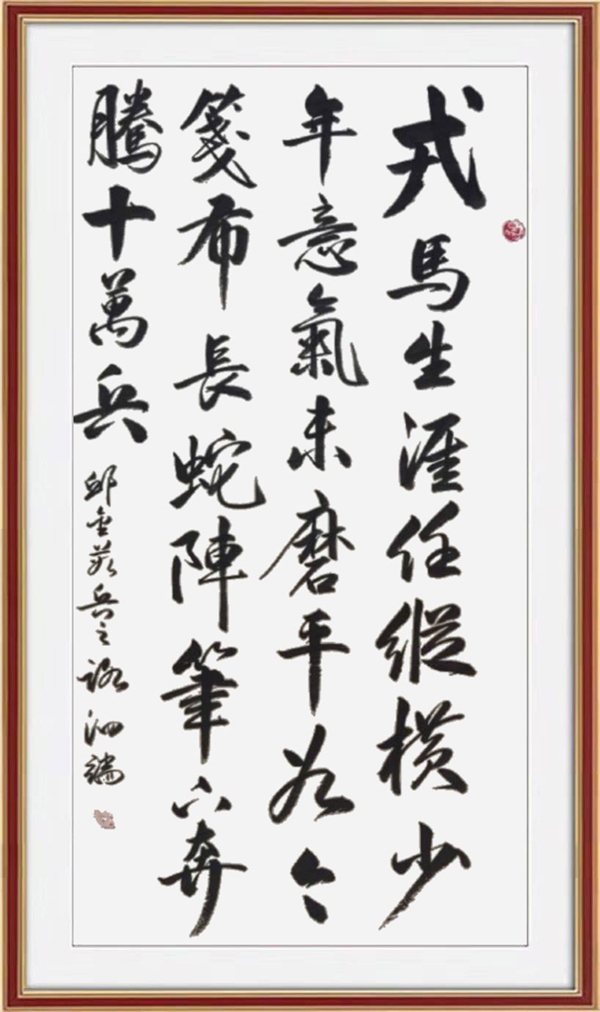 戎馬生涯任縱橫少
年意氣未磨平如今
箋布長蛇陣筆下奔
騰十萬兵
邱金兵之泗